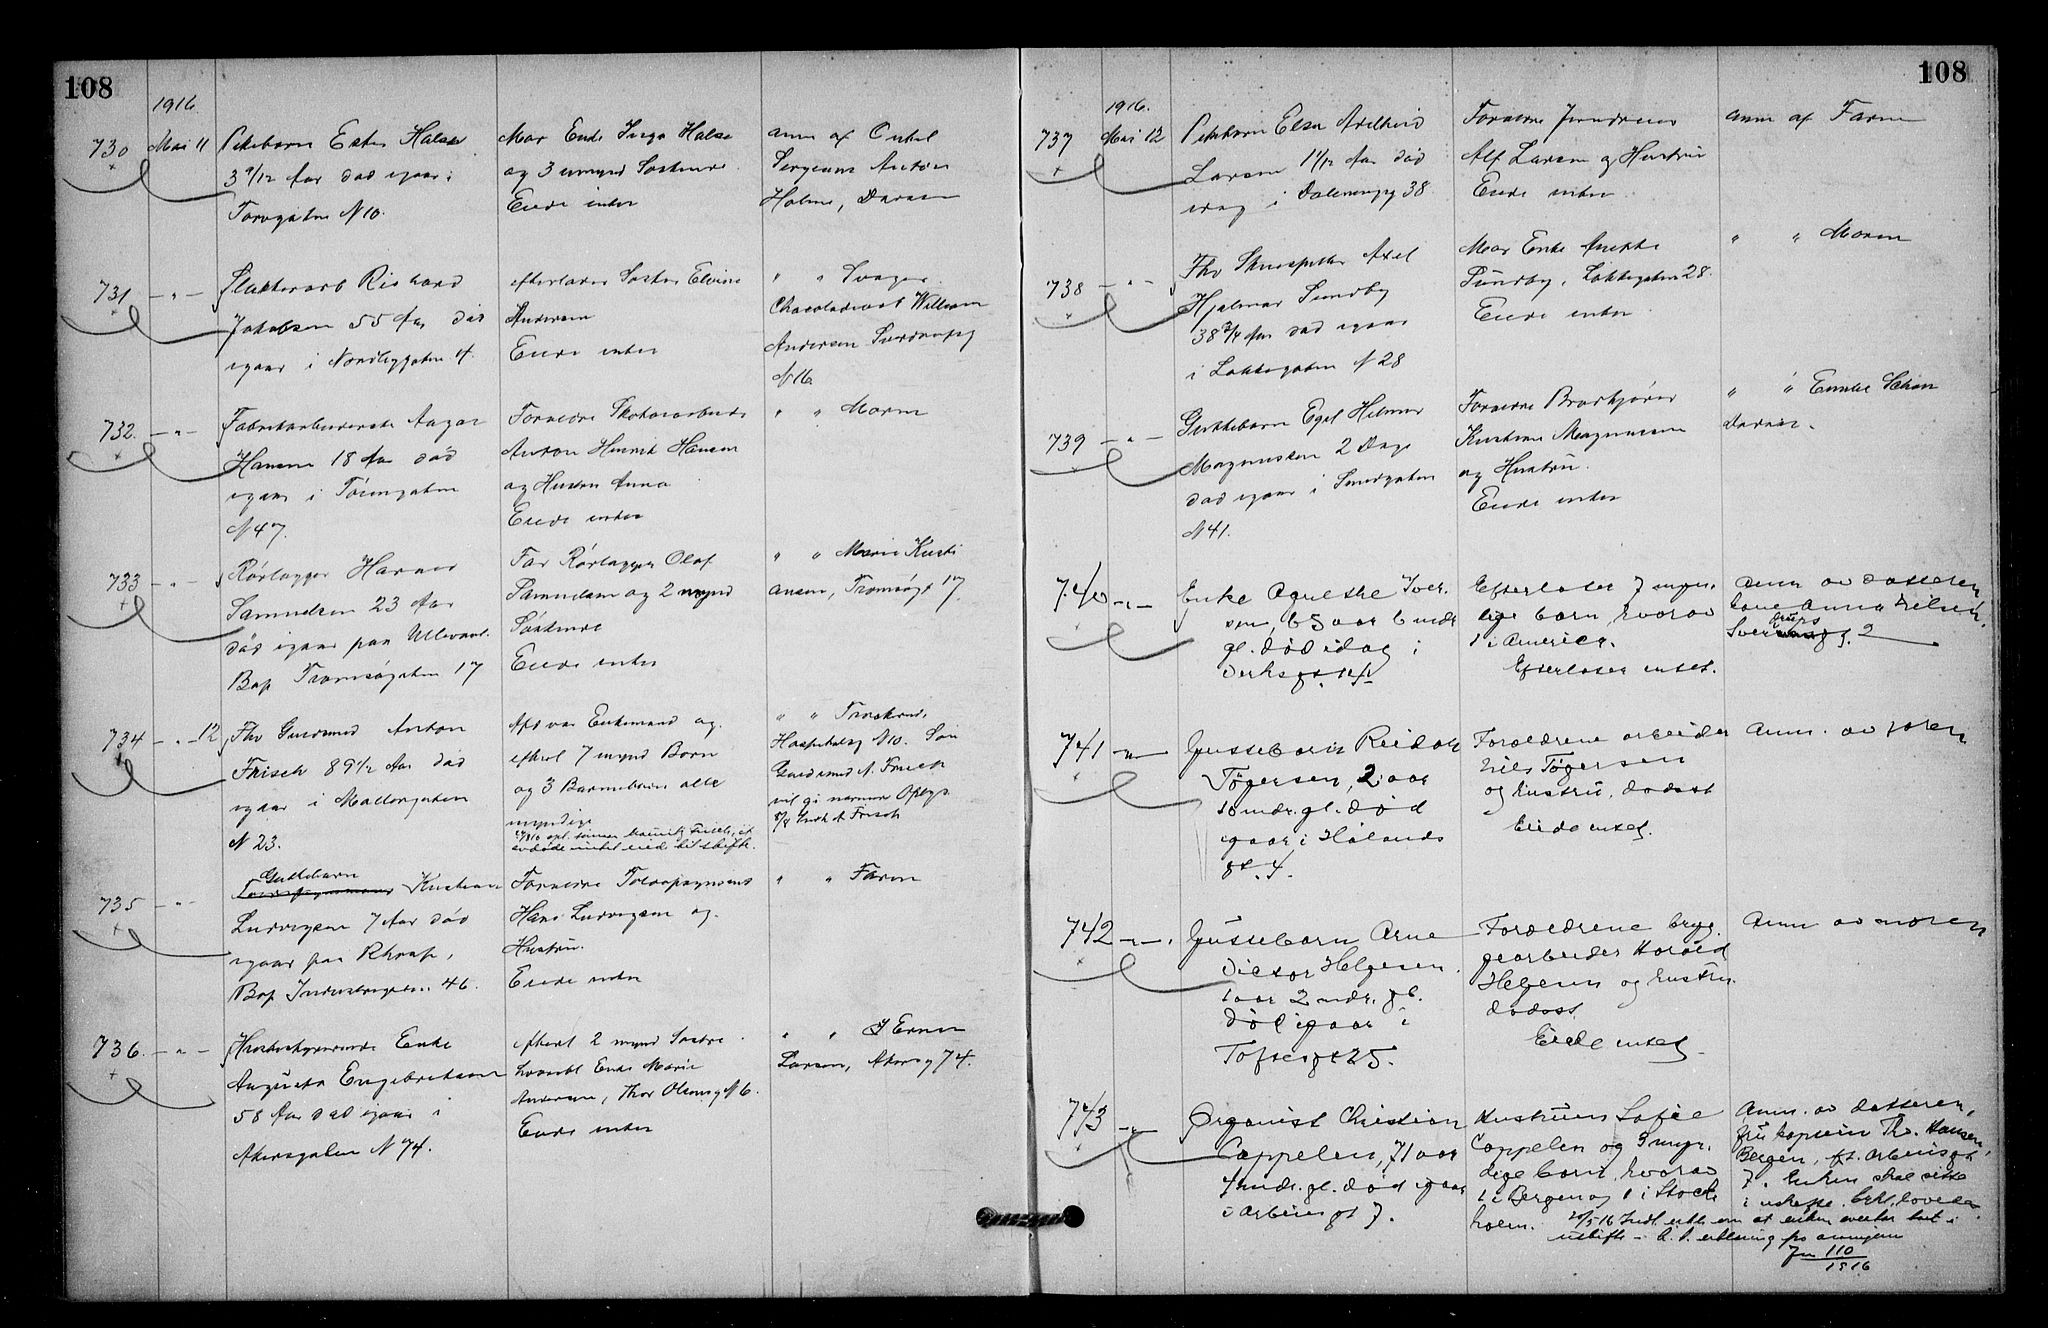 108
1916
730 Mai 11 Pikebarn Ester Halse
3 9/12 Aar død igaar i
Torvgaten N 10.
Mor Enke Inga Halse
og 3 umynd Søskende
Eiede intet
anm af Onkel
Sergeant Anton
Holme, Dramm
731 — " — Slakterarb Rishard
Jakobsen 55 Aar død
igaar i Nordbygaten 4.
efterlader Søster Elvine
Andersen
Eiede intet
" " Svoger
Chocoladearb William
Andersen
N 16
732. — " — Fabrikarbeiderske Aagot
Hansen 18 Aar død
igaar i Tøiengaten
N 47.
Forældre Skotøiarbeider
Anton Henrik Hansen
og Hustru Anna
Eiede intet
" " Moren
733 — " — Rørlægger Harald
Samuelsen 23 Aar
død igaar paa Ullevaal.
Bop Tromsøgaten 17
Far Rørlægger Olaf
Samuelsen og 2 mynd
Søskende
Eiede intet
" " Marie Kristi
ansen, Tromsøgt 17.
734 — " — 12 Fhv Guldsmed Anton
Frisch 89 1/2 Aar død
igaar i Møllergaten
N 23.
Afd var Enkemand og
efterl 7 mynd Børn
og 3 Barnebørn alle
myndige
avdøde intet eied til skifte.
" "
Hospitalsg N 10. Søn
Guldsmed A. Frisch
vil gi nærmere Oplys.
A Frisch
735 — " — Guttebarn
Kristian
Ludvigsen 7 Aar død
igaar paa Rhosp,
Bop Industrigaten 46.
Forældre Toldopsynsmd
Hans Ludvigsen og
Hustru.
Eiede intet
" " Faren
736. — " — Husbestyrerinde Enke
Augusta Engebretsen
58 Aar død igaar i
Akersgaten N 74.
efterl 2 mynd Søstre
hvoraf Enke Marie
Andersen, Thor Olsensg N 6.
Eiede intet
" "
Larsen, Akersg 74.
108
1916.
737 Mai 12 Pikebarn Elsa Adelheid
Larsen 1 1/12 Aar død
idag i Dælenenggt 38
Forældre
Alf Larsen og Hustru
Eiede intet
anm af Faren
738 — " — Fhv Skuespiller Axel
Hjalmar Sundby
38 3/4 Aar død igaar
i Løkkegaten N 28
Mor Enke Anette
Sundby, Løkkegaten 28.
Eiede intet
" " Moren
739 — " — Guttebarn Egil Helmer
Magnussen 2 Dage
død igaar i Smedgaten
N 41.
Forældre Brødkjører
Kristian Magnussen
og Hustru.
Eiede intet
" " Emilie Schan
740 — " — Enke Agnethe Iver-
sen, 65 aar 6 mdr
gl. død idag i
Verksgt. 14
Efterlater 7 myn-
dige barn, hvorav
1 i Amerika.
Efterlater intet.
Anm av datteren
Anna Nilsen,
Sverdrups
gt. 2
741 — " — Guttebarn Reidar
Tøgersen, 2 aar
10 mdr. gl. død
igaar i Hølands
gt. 4.
Forældrene arbeider
Nils Tøgersen
og hustru, dødsst
Eiede intet.
Anm. av faren
742 — " — Guttebarn Arne
Viktor Helgesen.
1 aar 2 mdr. gl.
død igaar i
Toftesgt 25.
Forældrene bryg-
gearbeider Harald
Helgesen og hustru.
dødsst
Eiede intet
Anm av moren
743 — " — Organist Christian
Cappelen, 71 aar
4 mdr. gl. død igaar
i Arbeinsgt 7.
Hustruen Sofie
Cappelen og 3 myn-
dige barn, hvorav
1 i Bergen og 1 i Stock
holm.
Anm. av datteren,
fru kaptein Th. Hansen
Bergen, pt. Arbeinsgt
7. Enken skal sitte
i uskifte.
20/5-16 Indl. erkl. om at enken overtar boet i
uskifte
Jn 110
1916